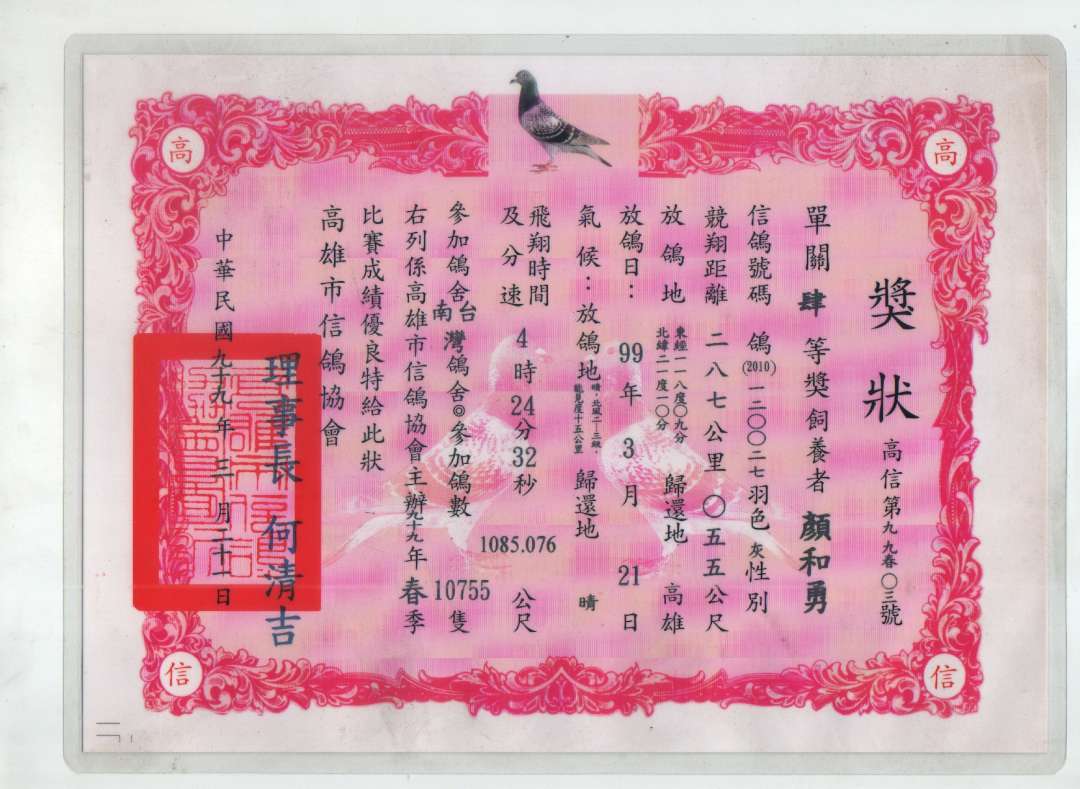 獎狀 高信第九九春〇三號
單關 肆 等獎飼養者 顏和勇
信鴿號碼 鴿(2010)一二〇〇二七羽色 灰 性別
競翔距離 二八七公里 〇五五公尺
放鴿地 東經一一八度〇九分 北緯二一度一〇分 歸還地 高雄
放鴿日：99年3月21日
氣候：放鴿地 晴，北風二—三級，能見度十五公里 歸還地 晴
飛翔時間及分速 4時24分32秒 1085.076 公尺
參加鴿舍 南台灣鴿舍◎參加鴿數 10755 隻
右列係高雄市信鴿協會主辦九十九年 春 季
比賽成績優良特給此狀
高雄市信鴿協會
理事長 何清吉
中華民國九十九年三月二十一日
高
高
信
信